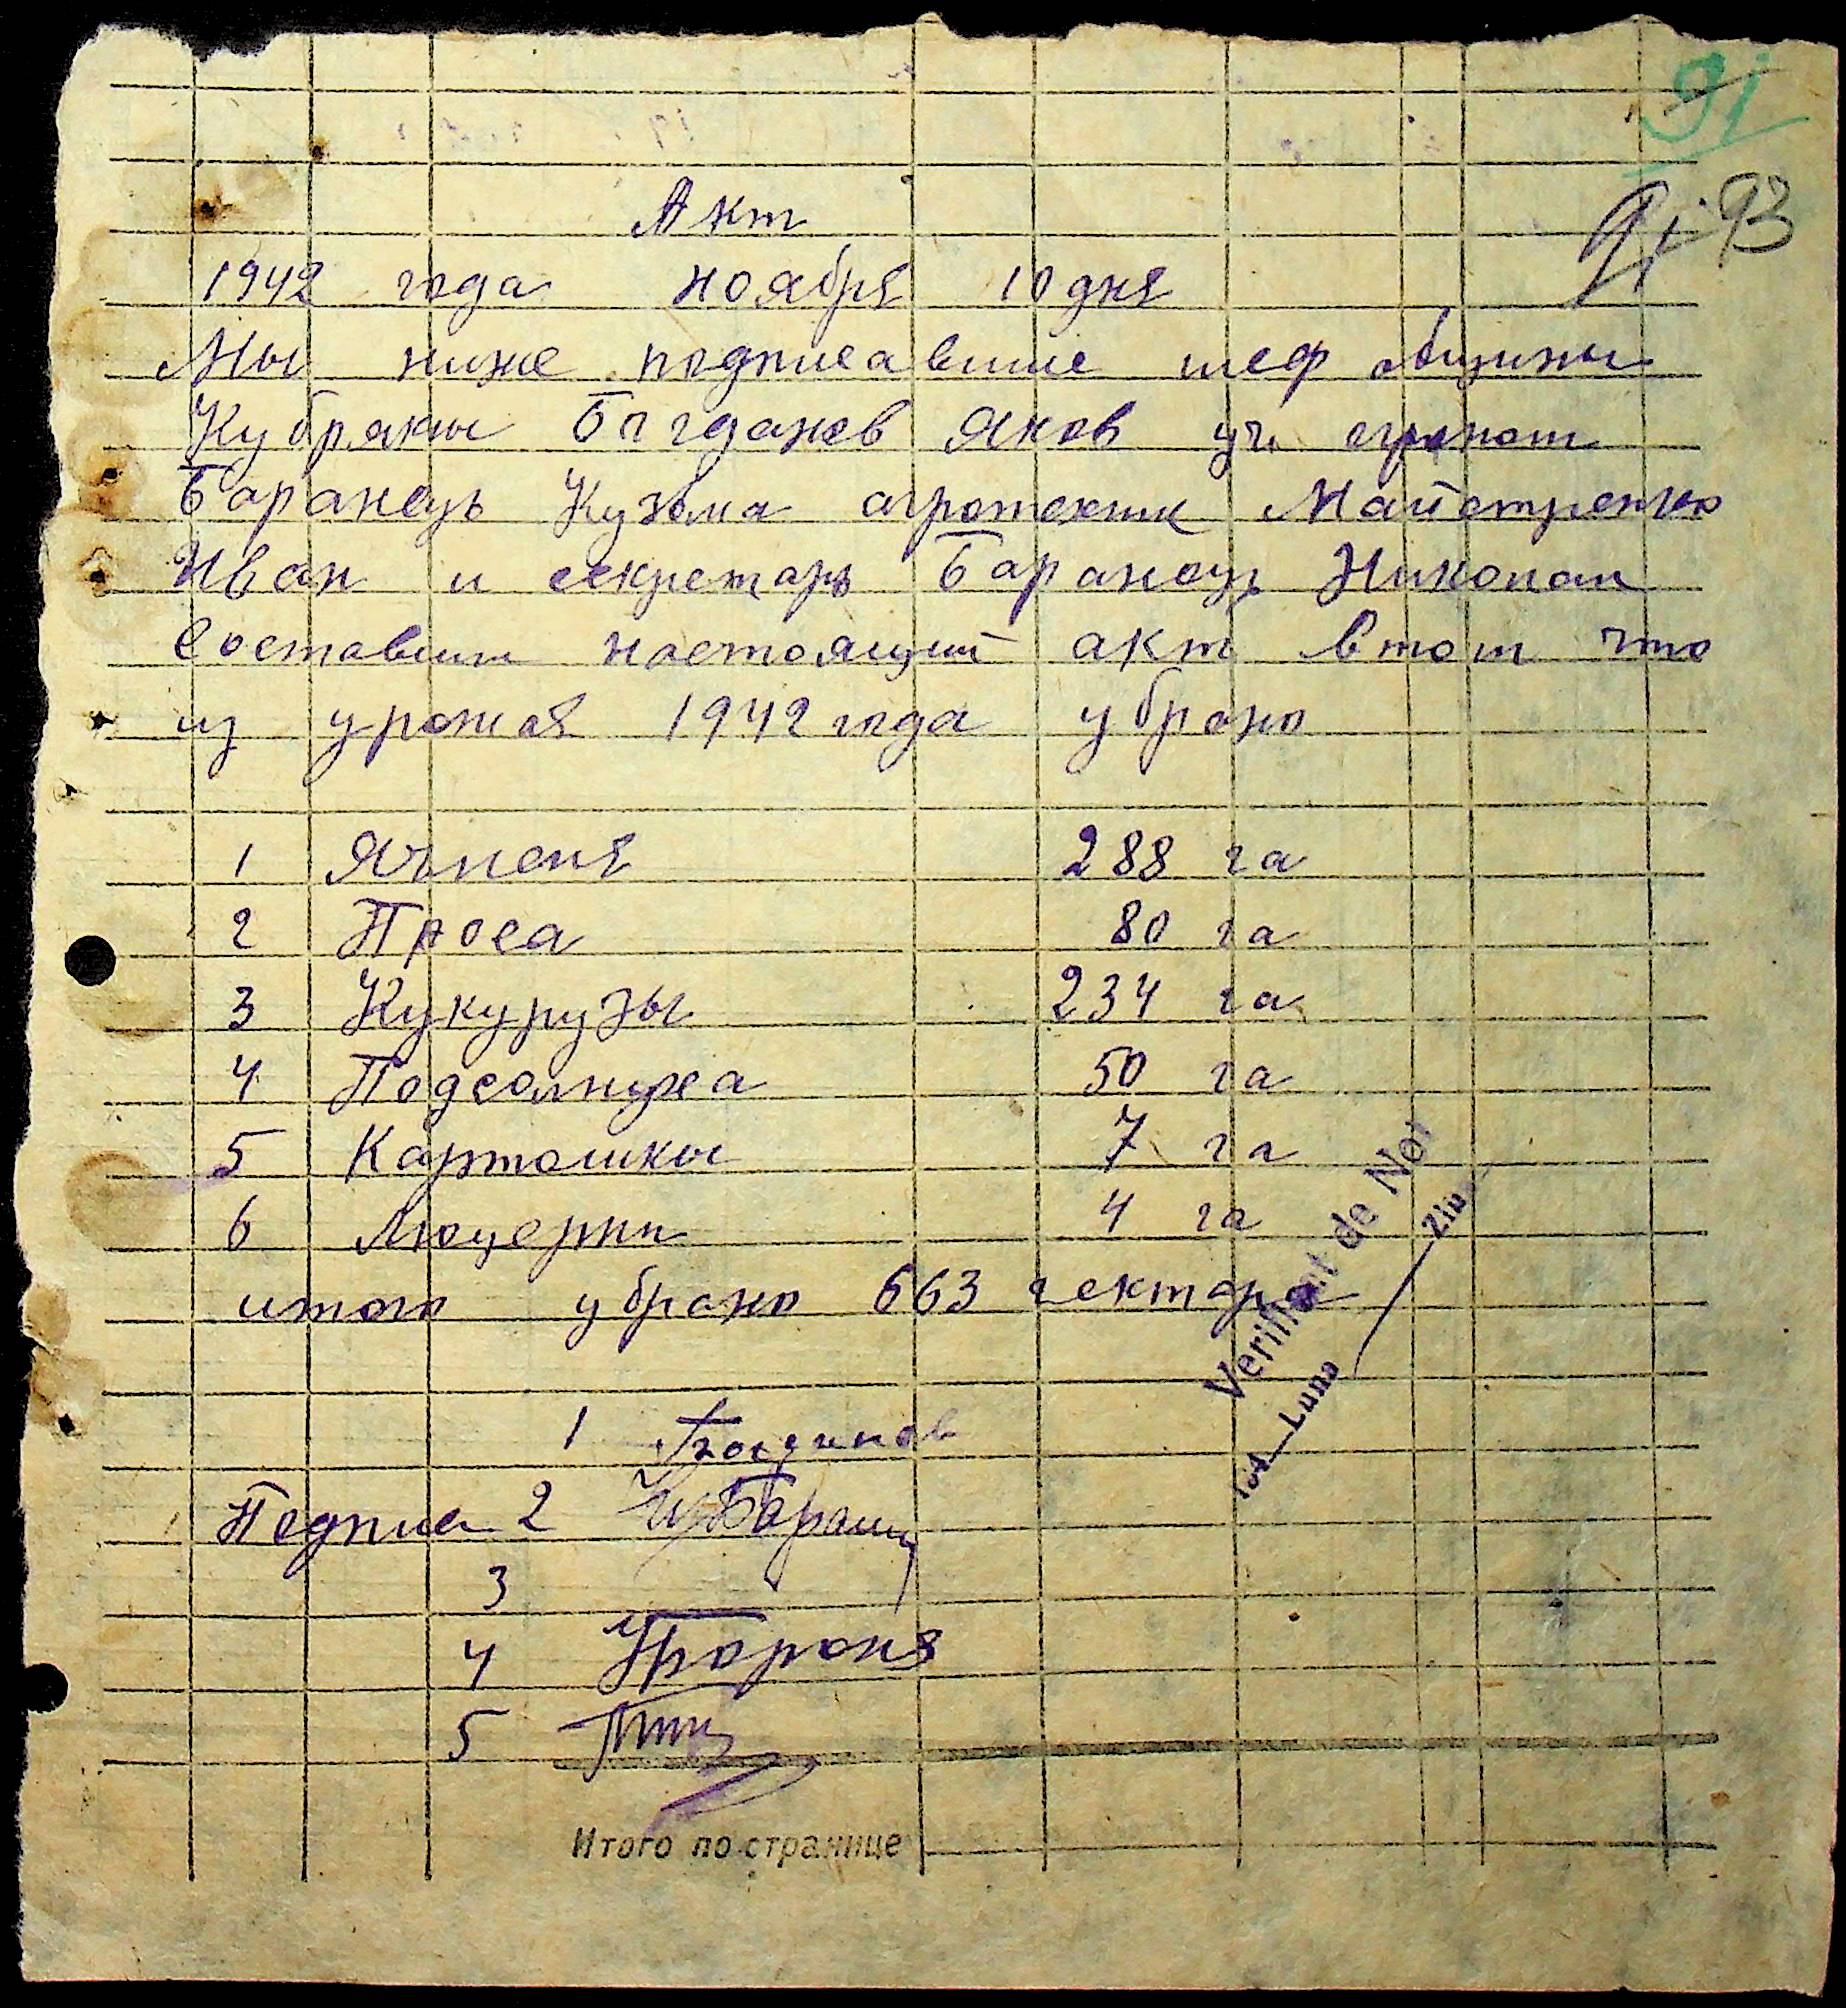 91
91 93
Акт
1942 года ноября 10 дня
Мы ниже подписавшие шеф общины
Кубряны Богданов Яков уч. агроном
Баранець Кузьма агротехник Майстренко
Иван и секретарь Баранець Николай
составили настоящий акт втом что
из урожая 1942 года убрано
1 Ячьменя 288 га
2 Проса 80 га
3 Кукурузы 234 га
4 Подсолнуха 50 га
5 Картошкы 7 га
6 Люцерни 4 га
итого убрано 663 гектара
1 Богданов
Подписи 2 Баранец
3
4
5
Verificat de Noi
Luna Ziua
Итого по странице